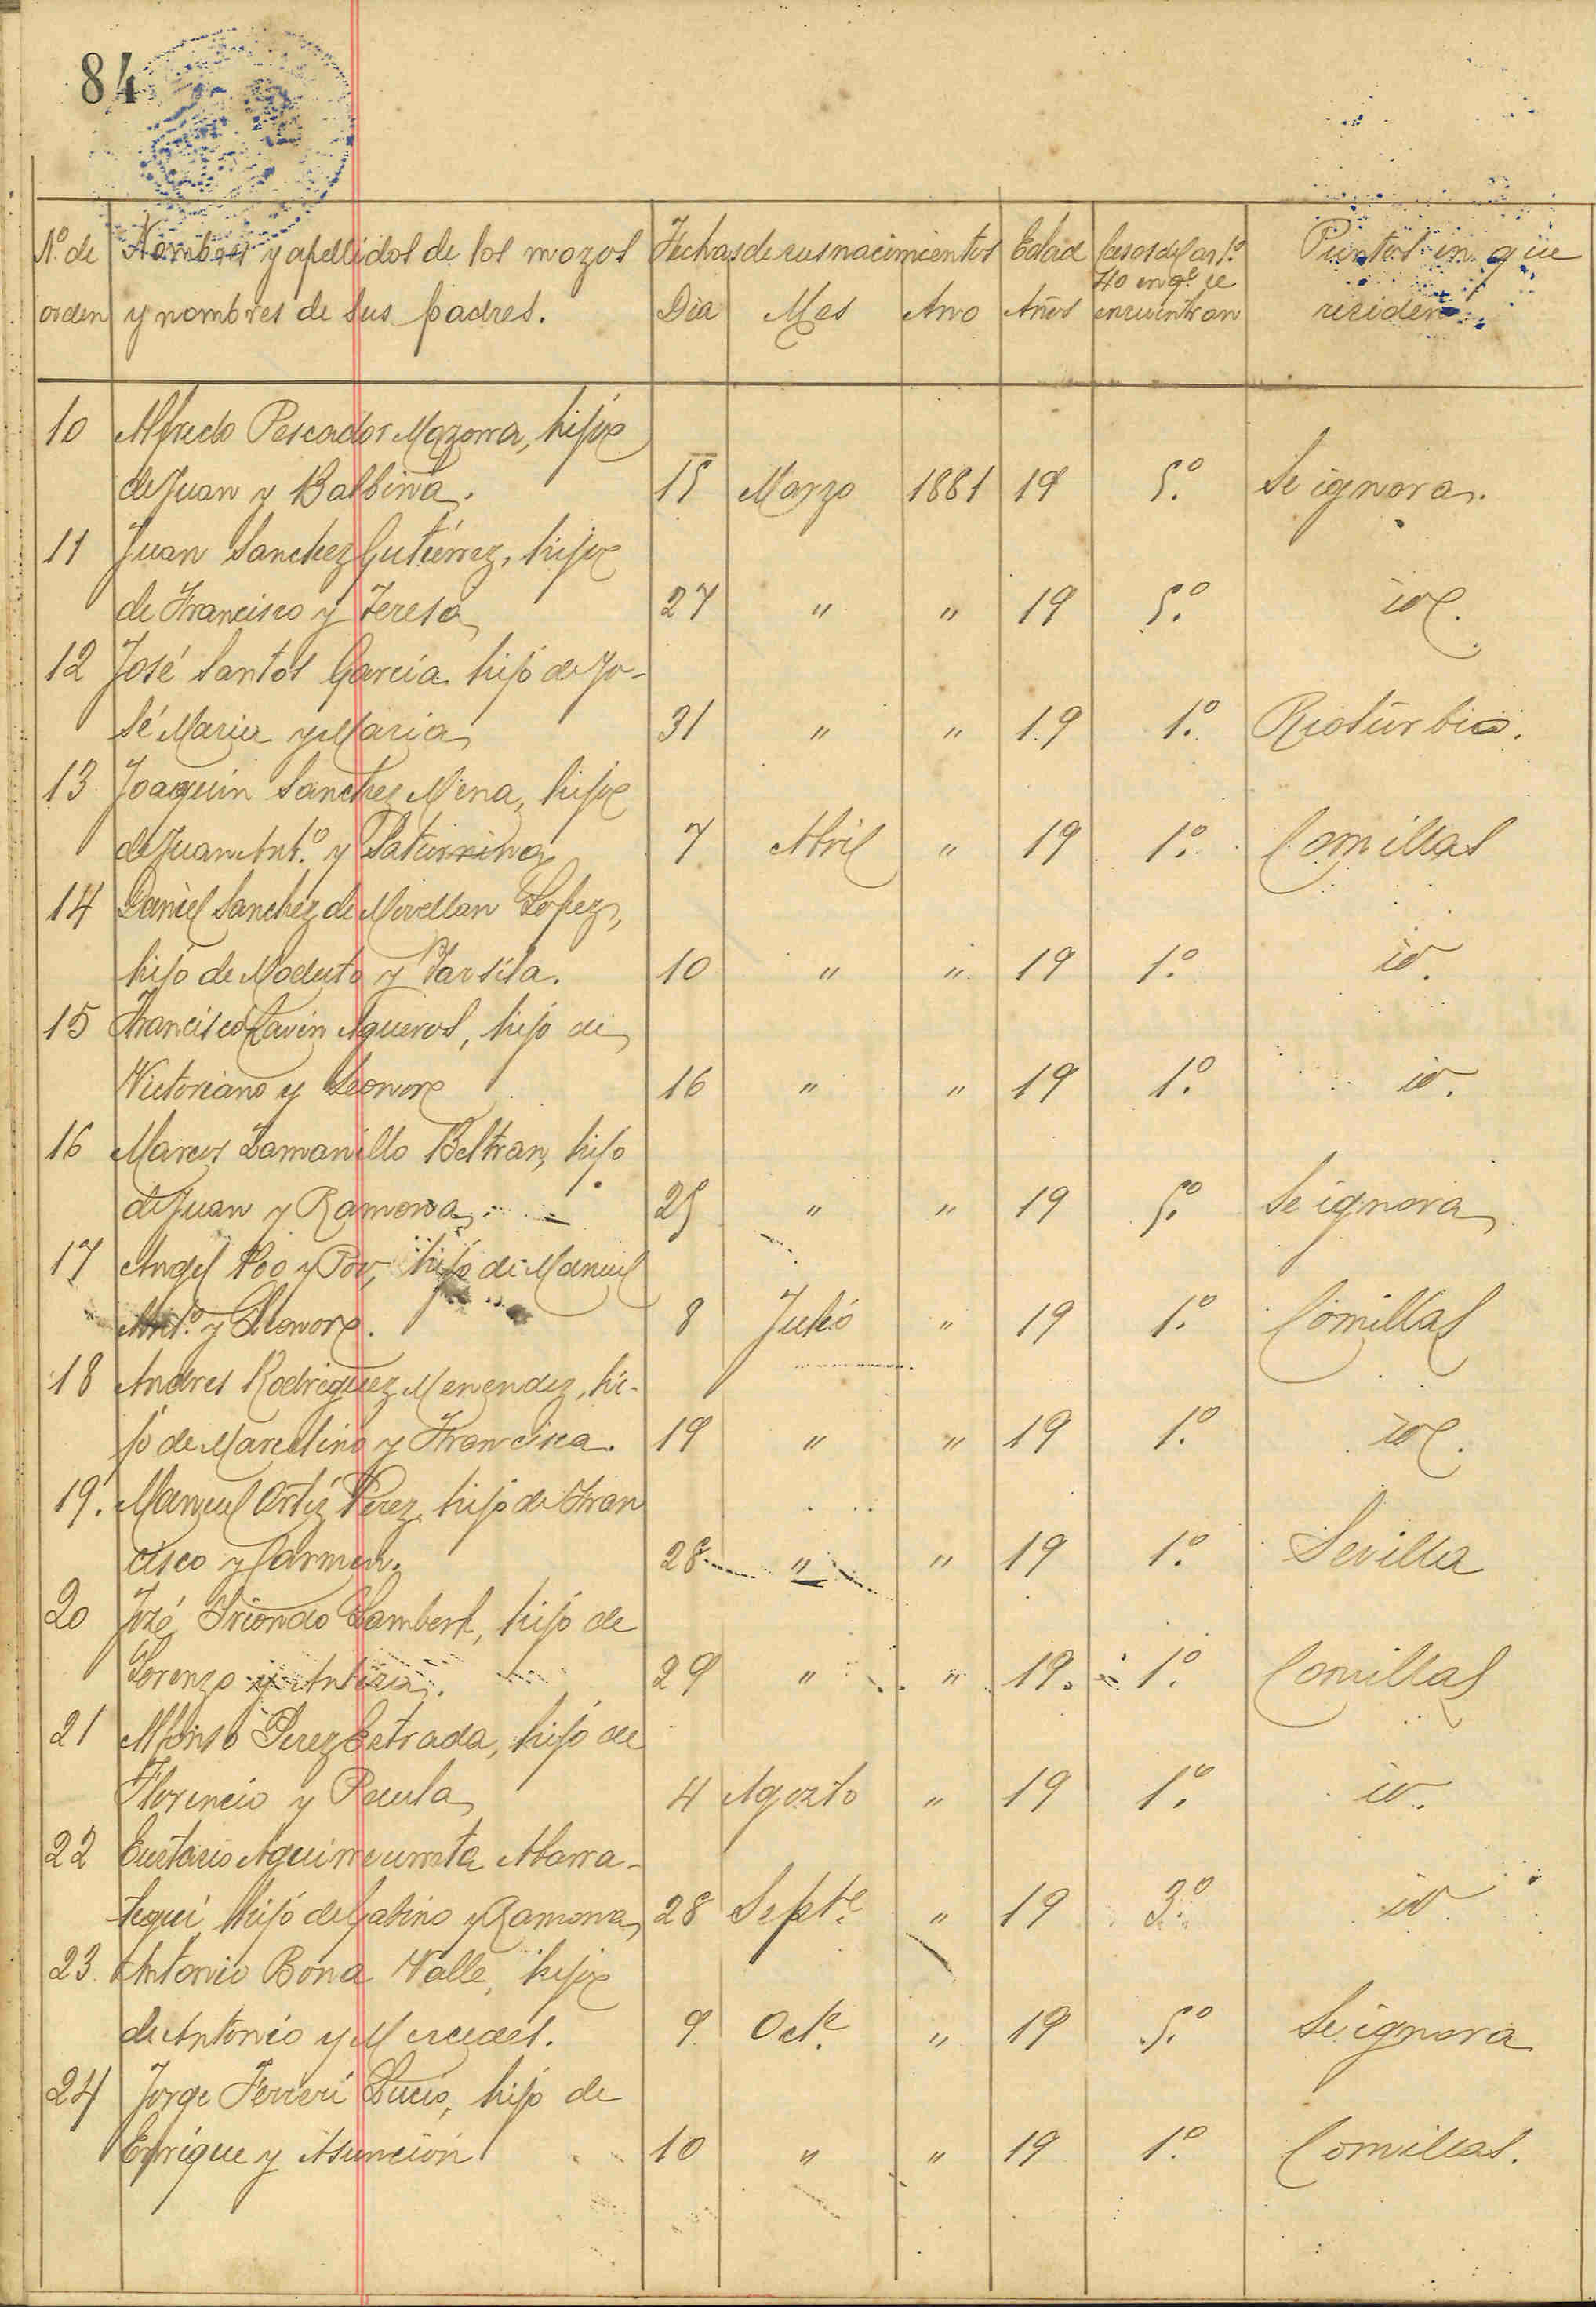 84
N.º de Nombres y apellidos de los mozos Fechas de sus nacimientos Edad Casos del art.º Puntos en que
40 en q.e se
orden y nombres de sus padres. Dia Mes Año Años encuentran residen
10 Alfredo Pescador Mazorra, hijo
de Juan y Balbina. 15 Marzo 1881 19 5.º Se ignora.
11 Juan Sanchez Gutiérrez, hijo
de Francisco y Teresa 27 " " 19 5.º id.
12 José Santos Garcia hijo de Jo-
sé Maria y Maria 31 " " 19 1.º Rioturbio.
13 Joaquin Sanchez Mena, hijo
de Juan Ant.º y Saturnina 7 Abril " 19 1.º Comillas
14 Daniel Sanchez de Movellan Lopez,
hijo de Modesto y Tarsila. 10 " " 19 1.º id.
15 Francisco Lavin Agueros, hijo de
Victoriano y Leonor 16 " " 19 1.º id.
16 Marcos Zamanillo Beltran, hijo
de Juan y Ramona. 25 " " 19 5.º Se ignora
17 Angel Poo y Poo, hijo de Manuel
Ant.º y Leonor. 8 Julio " 19 1.º Comillas
18 Andres Rodriguez Menendez, hi-
jo de Marcelino y Francisca. 19 " " 19 1.º id.
19. Manuel Ortiz Perez hijo de Fran
cisco y Carmen. 28 " " 19 1.º Sevilla
20 José Iriondo Lambert, hijo de
Lorenzo y 29 " " 19. 1.º Comillas
21 Alfonso Perez Estrada, hijo de
Florencio y Paula 4 Agosto " 19 1.º id.
22 Eustasio Aguirreurreta Abarra-
tegui hijo de Gabino y Ramona 28 Sept.e " 19 3.º id
23. Antonio Bona Valle, hijo
de Antonio y Mercedes. 9 Oct.e " 19 5.º Se ignora
24 Jorge Ferreri Lucio, hijo de
Enrique y Asunción 10 " " 19 1.º Comillas.